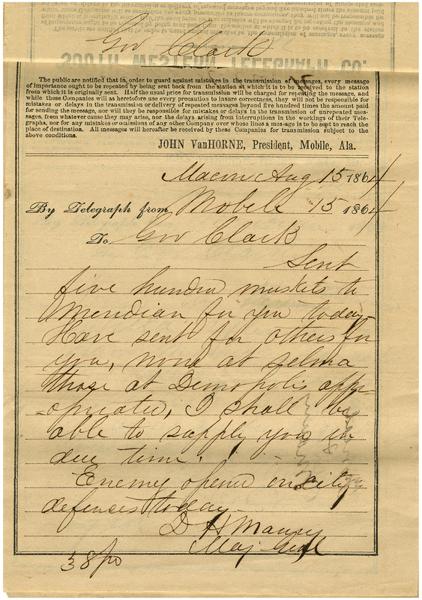 Gov Clark
SOUTH WESTERN TELEGRAPH CO:
The public are notified that in order to guard against mistakes in the transmission of messages, every message
of importance ought to be repeated by being sent back from the station at which it is to be received to the station
from which it is originally sent. Half the usual price for transmission will be charged for repeating the message, and
while these Companies will as heretofore use every precaution to insure correctness, they will not be responsible for
mistakes or delays in the transmission or delivery of repeated messages beyond five hundred times the amount paid
for sending the message, nor will they be responsible for mistakes or delays in the transmission of unrepeated messages
from whatever cause they may arise, nor for delays arising from interruptions in the workings of their Tele-
graphs, nor for any mistakes or omissions of any other Company over whose lines a message is to be sent to reach the
place of destination. All messages will hereafter be received by these Companies for transmission subject to the
above conditions.
JOHN VanHORNE, President, Mobile, Ala.
Macon Aug 15 1864
By Telegraph from Mobile 15 1864
To Gov Clark
Sent
five hundred muskets to
Meridian for you today
Have sent for others for
you, none at Selma
those at Demopolis appr
-opriated, I shall be
able to supply you in
due time.
Enemy opened on city
defences today
D H Maury
Maj Genl
38 po